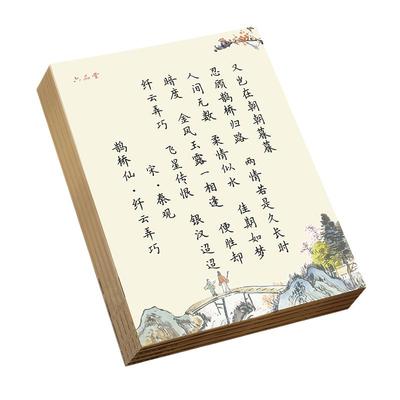 六品堂
鹊桥仙·纤云弄巧
宋·秦观
纤云弄巧 飞星传恨 银汉迢迢
暗度 金风玉露一相逢 便胜却
人间无数 柔情似水 佳期如梦
忍顾鹊桥归路 两情若是久长时
又岂在朝朝暮暮